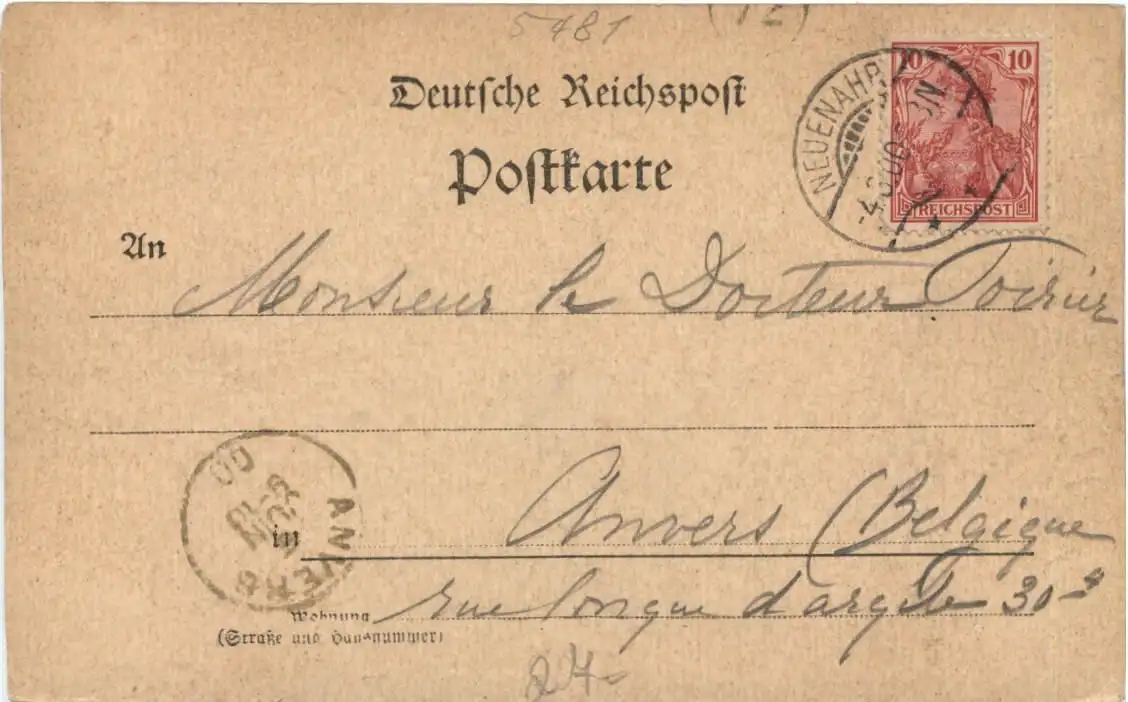 5481 (12)
Deutsche Reichspost
Postkarte
10 10
REICHSPOST
NEUENAHR
An Monsieur le Docteur Poirier
ANVERS
00
in Anvers (Belgique
Wohnung rue longue d'argile 30
(Straße und Hausnummer)